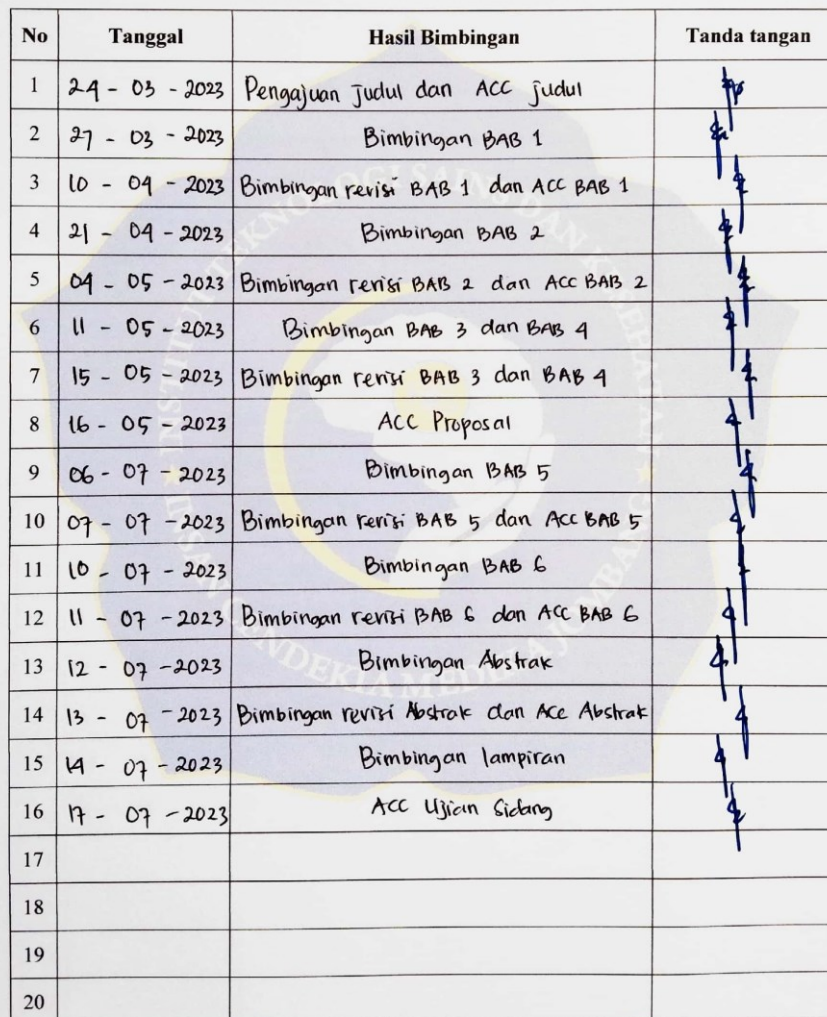 No Tanggal Hasil Bimbingan Tanda tangan
1 24 - 03 - 2023 Pengajuan judul dan ACC judul
2 27 - 03 - 2023 Bimbingan BAB 1
3 10 - 04 - 2023 Bimbingan revisi BAB 1 dan ACC BAB 1
4 21 - 04 - 2023 Bimbingan BAB 2
5 04 - 05 - 2023 Bimbingan revisi BAB 2 dan ACC BAB 2
6 11 - 05 - 2023 Bimbingan BAB 3 dan BAB 4
7 15 - 05 - 2023 Bimbingan revisi BAB 3 dan BAB 4
8 16 - 05 - 2023 ACC Proposal
9 06 - 07 - 2023 Bimbingan BAB 5
10 07 - 07 - 2023 Bimbingan revisi BAB 5 dan ACC BAB 5
11 10 - 07 - 2023 Bimbingan BAB 6
12 11 - 07 - 2023 Bimbingan revisi BAB 6 dan ACC BAB 6
13 12 - 07 - 2023 Bimbingan Abstrak
14 13 - 07 - 2023 Bimbingan revisi Abstrak dan Acc Abstrak
15 14 - 07 - 2023 Bimbingan lampiran
16 17 - 07 - 2023 ACC Ujian Sidang
17
18
19
20
INSTITUT TEKNOLOGI SAINS DAN KESEHATAN
INSAN CENDEKIA MEDIKA JOMBANG